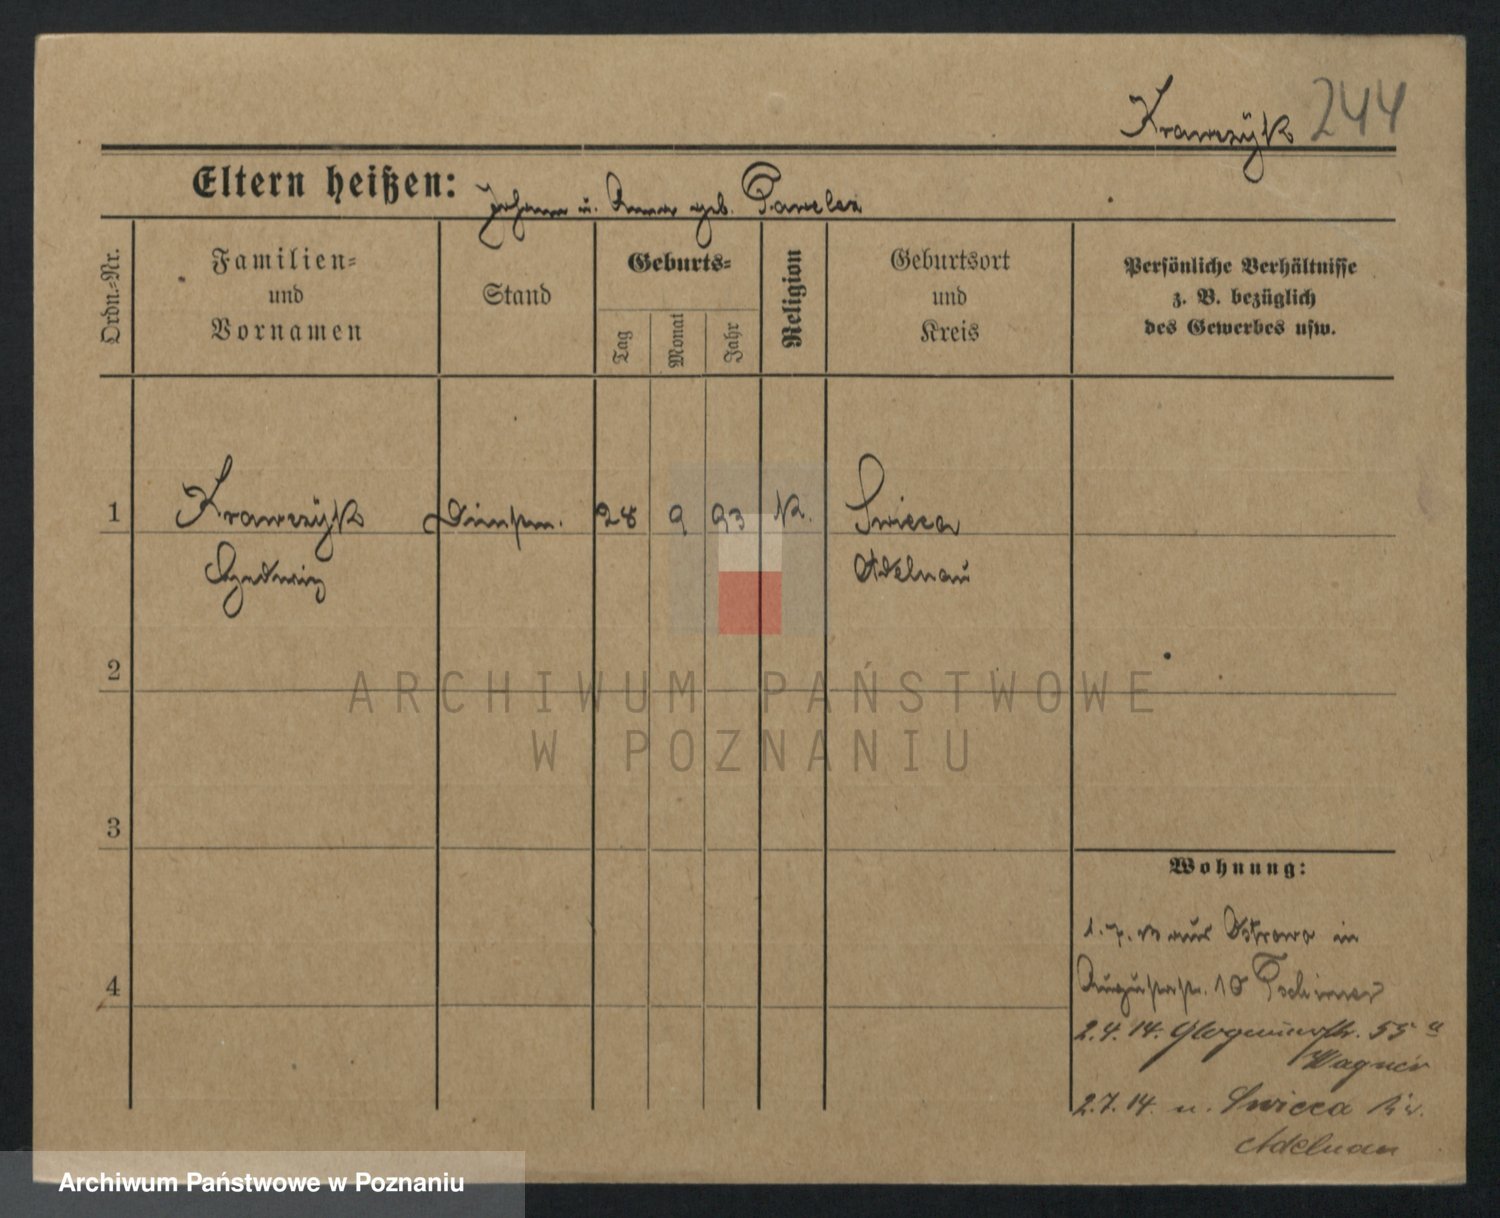 Krawczÿk 244
Eltern heißen: Johann u. Anna geb. Pawelec
Ordn.-Nr.
Familien-
und
Vornamen
Stand
Geburts-
Tag
Monat
Jahr
Religion
Geburtsort
und
Kreis
Persönliche Verhältnisse
z. B. bezüglich
des Gewerbes usw.
1 Krawczÿk 28 9 93 K. Swieca
Hedwig Adelnau
2
3
4
ARCHIWUM PAŃSTWOWE
W POZNANIU
Wohnung:
1. 7. 13 aus Ostrowo in
Augustastr. 10
2.4.14. Glogauerstr. 55 a
Wagner
2.7.14 n. Swieca Kr.
Adelnau
Archiwum Państwowe w Poznaniu